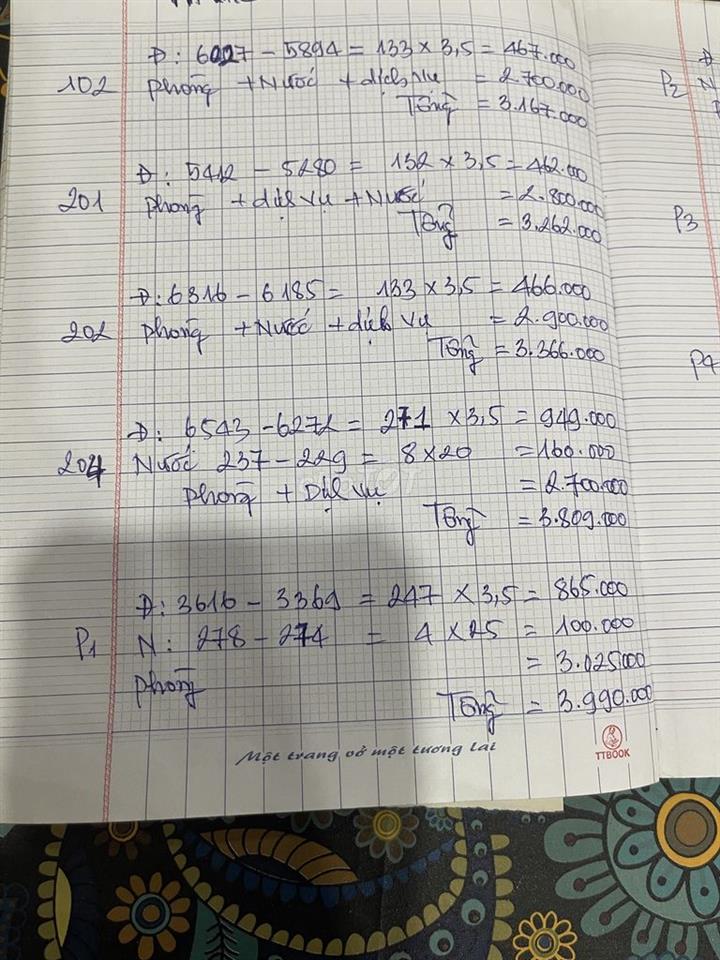 Đ: 6027 - 5894 = 133 x 3,5 = 467.000
102 phòng + Nước + dịch vụ = 2.700.000
Tổng = 3.167.000
Đ: 5412 - 5280 = 132 x 3,5 = 462.000
201 phòng + dịch vụ + Nước = 2.800.000
Tổng = 3.262.000
Đ: 6316 - 6185 = 133 x 3,5 = 466.000
202 phòng + Nước + dịch vụ = 2.900.000
Tổng = 3.366.000
Đ: 6543 - 6272 = 271 x 3,5 = 949.000
204 Nước 237 - 229 = 8 x 20 = 160.000
phòng + Dịch vụ = 2.700.000
Tổng = 3.809.000
Đ: 3616 - 3369 = 247 x 3,5 = 865.000
P1 N: 278 - 274 = 4 x 25 = 100.000
phòng = 3.025.000
Tổng = 3.990.000
Một trang vở một tương lai
TTBOOK
Đ
P2 N
P3
P4